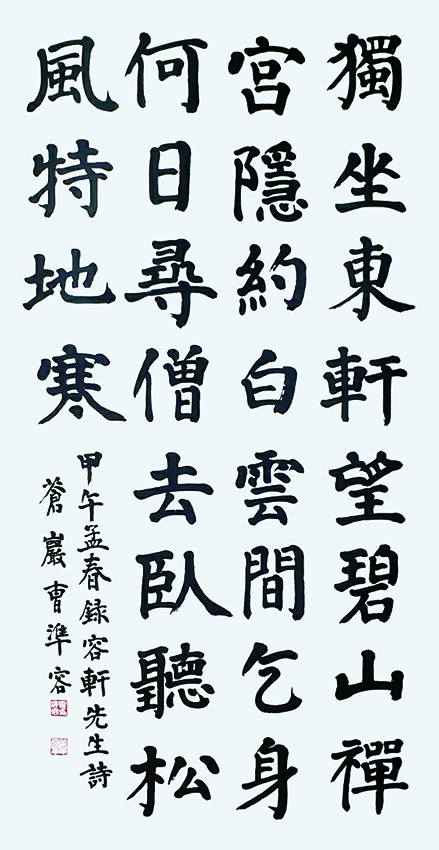 獨坐東軒望碧山禪
宮隱約白雲間乞身
何日尋僧去臥聽松
風特地寒
甲午孟春録容軒先生詩
蒼巖曺準容